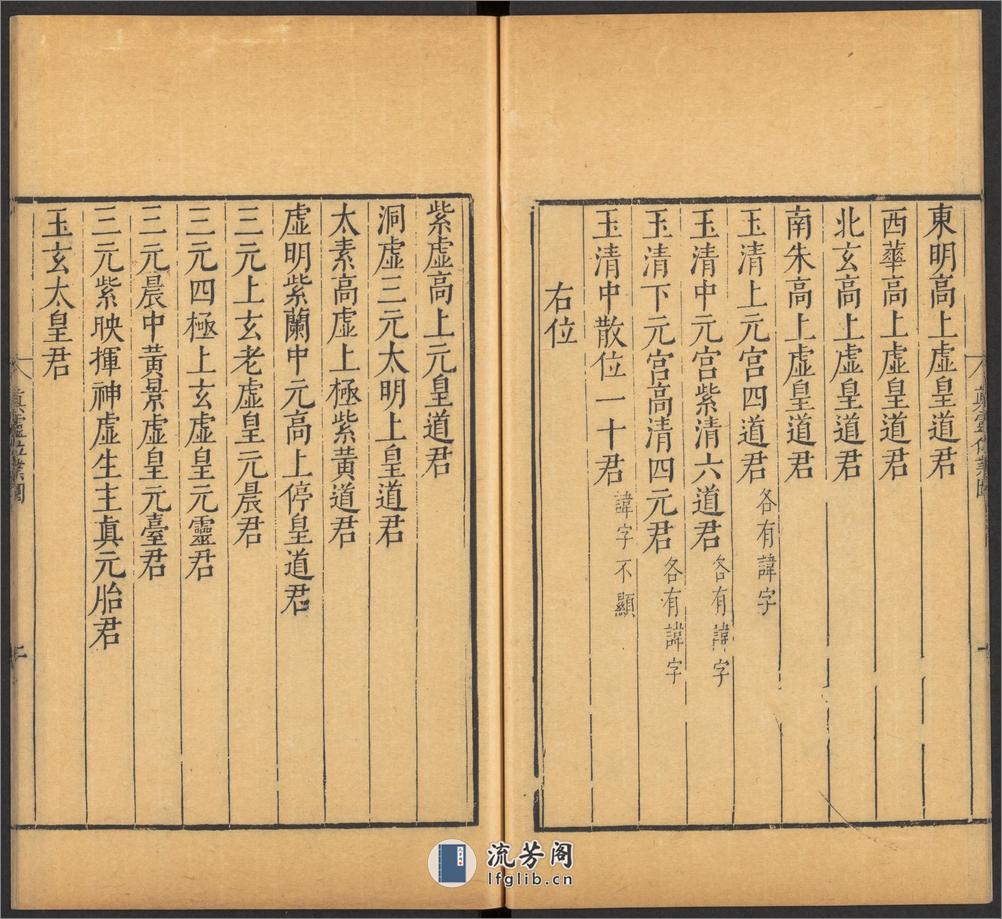 東明高上虛皇道君
西華高上虛皇道君
北玄高上虛皇道君
南朱高上虛皇道君
玉清上元宮四道君各有諱字
玉清中元宮紫清六道君各有諱字
玉清下元宮高清四元君各有諱字
玉清中散位一十君諱字不顯
右位
紫虛高上元皇道君
洞虛三元太明上皇道君
太素高虛上極紫黃道君
虛明紫蘭中元高上停皇道君
三元上玄老虛皇元晨君
三元四極上玄虛皇元靈君
三元晨中黃景虛皇元臺君
三元紫映揮神虛生主真元胎君
玉玄太皇君
真靈位業圖
流芳阁
lfglib.cn